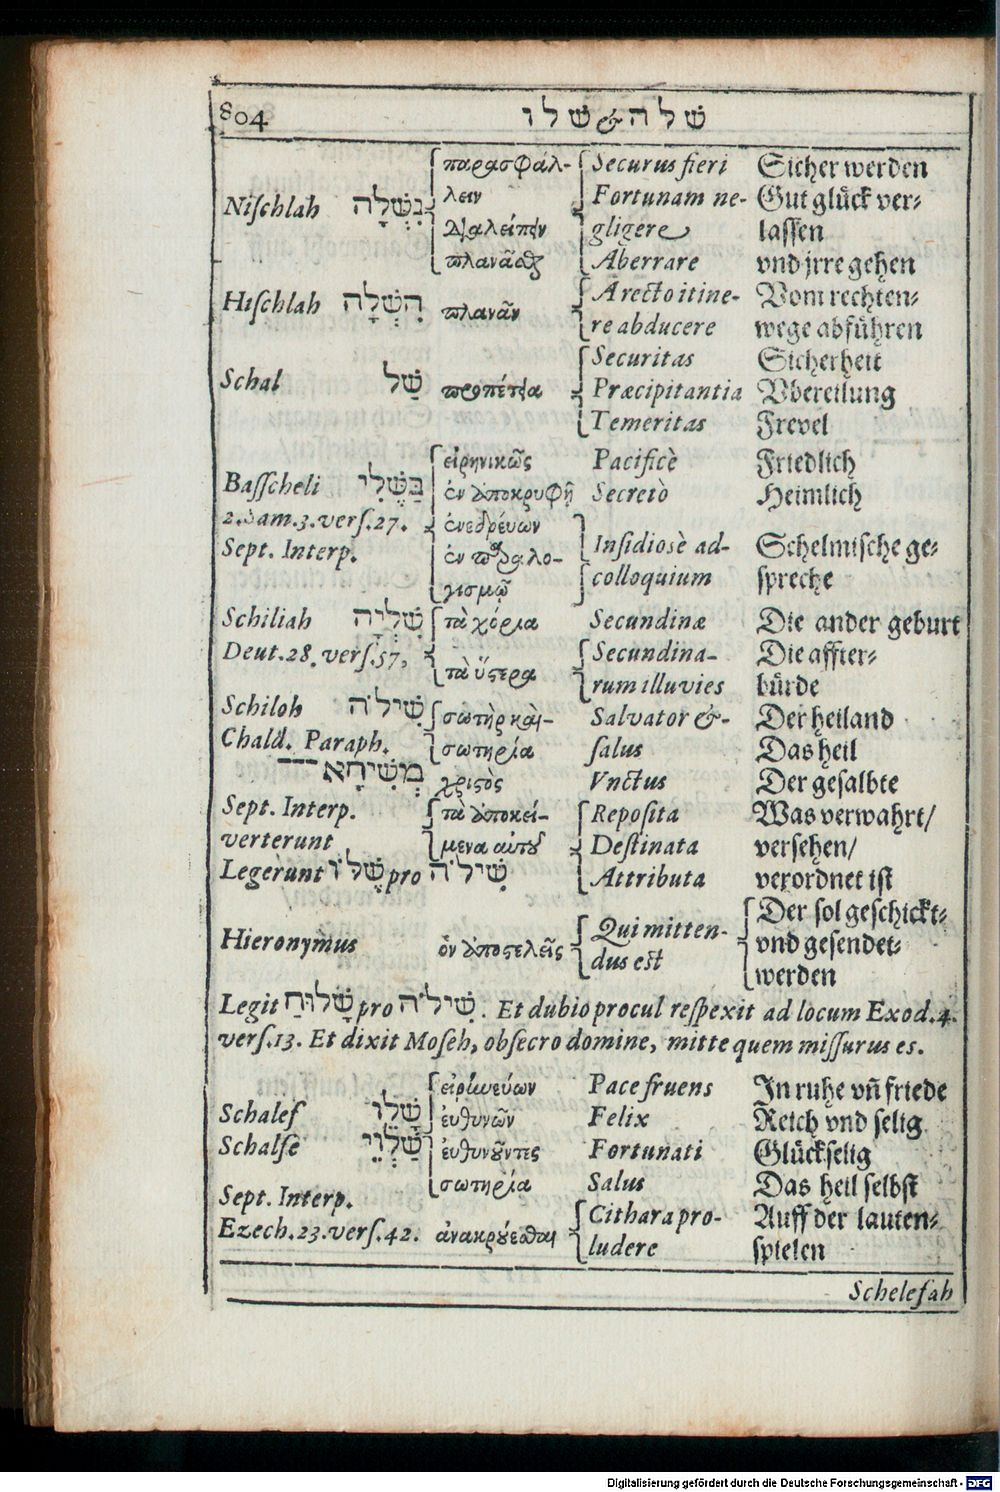 804 שלה & שלו
Niſchlah נִשְׁלָה παρασφάλ- Securus fieri Sicher werden
λειν Fortunam ne- Gut glück ver-
διαλείπειν gligere laſſen
πλανᾶσθαι Aberrare vnd jrre gehen
Hiſchlah הִשְׁלָה πλανᾶν A recto itine- Vom rechten-
re abducere wege abführen
Securitas Sicherheit
Schal שַׁל προπέτεια Præcipitantia Vbereilung
Temeritas Frevel
εἰρηνικῶς Pacificè Friedlich
Baſſcheli בַּשֶּׁלִי ἐν ἀποκρυφῇ Secretò Heimlich
2. Sam. 3. verſ. 27. ἐνεδρεύων
Sept. Interp. ἐν παραλο- Inſidioſè ad- Schelmiſche ge-
γισμῷ colloquium ſpreche
Schiliah שִׁלְיָה τὰ χόρια Secundinæ Die ander geburt
Deut. 28. verſ. 57, τὰ ὕστερα Secundina- Die affter-
rum illuvies bürde
Schiloh שִׁילֹה σωτὴρ καὶ- Salvator &- Der heiland
Chald. Paraph. σωτηρία ſalus Das heil
מְשִׁיחָא χριστὸς Vnctus Der geſalbte
Sept. Interp. τὰ ἀποκεί- Repoſita Was verwahrt/
verterunt μενα αὐτοῦ Deſtinata verſehen/
Legerunt שֶׁלוֹ pro שִׁילֹה Attributa verordnet iſt
Der ſol geſchickt-
Hieronymus ὃν ἀποστελεῖς Qui mitten- vnd geſendet-
dus eſt werden
Legit שָׁלוּחַ pro שִׁילֹה. Et dubio procul reſpexit ad locum Exod. 4.
verſ. 13. Et dixit Moſeh, obſecro domine, mitte quem miſſurus es.
εἰρηνεύων Pace fruens In ruhe vñ friede
Schaleſ שָׁלֵו εὐθυνῶν Felix Reich vnd ſelig
Schalſe שַׁלְוֵי εὐθυνοῦντες Fortunati Glückſelig
σωτηρία Salus Das heil ſelbſt
Sept. Interp. Cithara pro- Auff der lauten-
Ezech. 23. verſ. 42. ἀνακρούεσθαι ludere ſpielen
Scheleſah
Digitalisierung gefördert durch die Deutsche Forschungsgemeinschaft - DFG